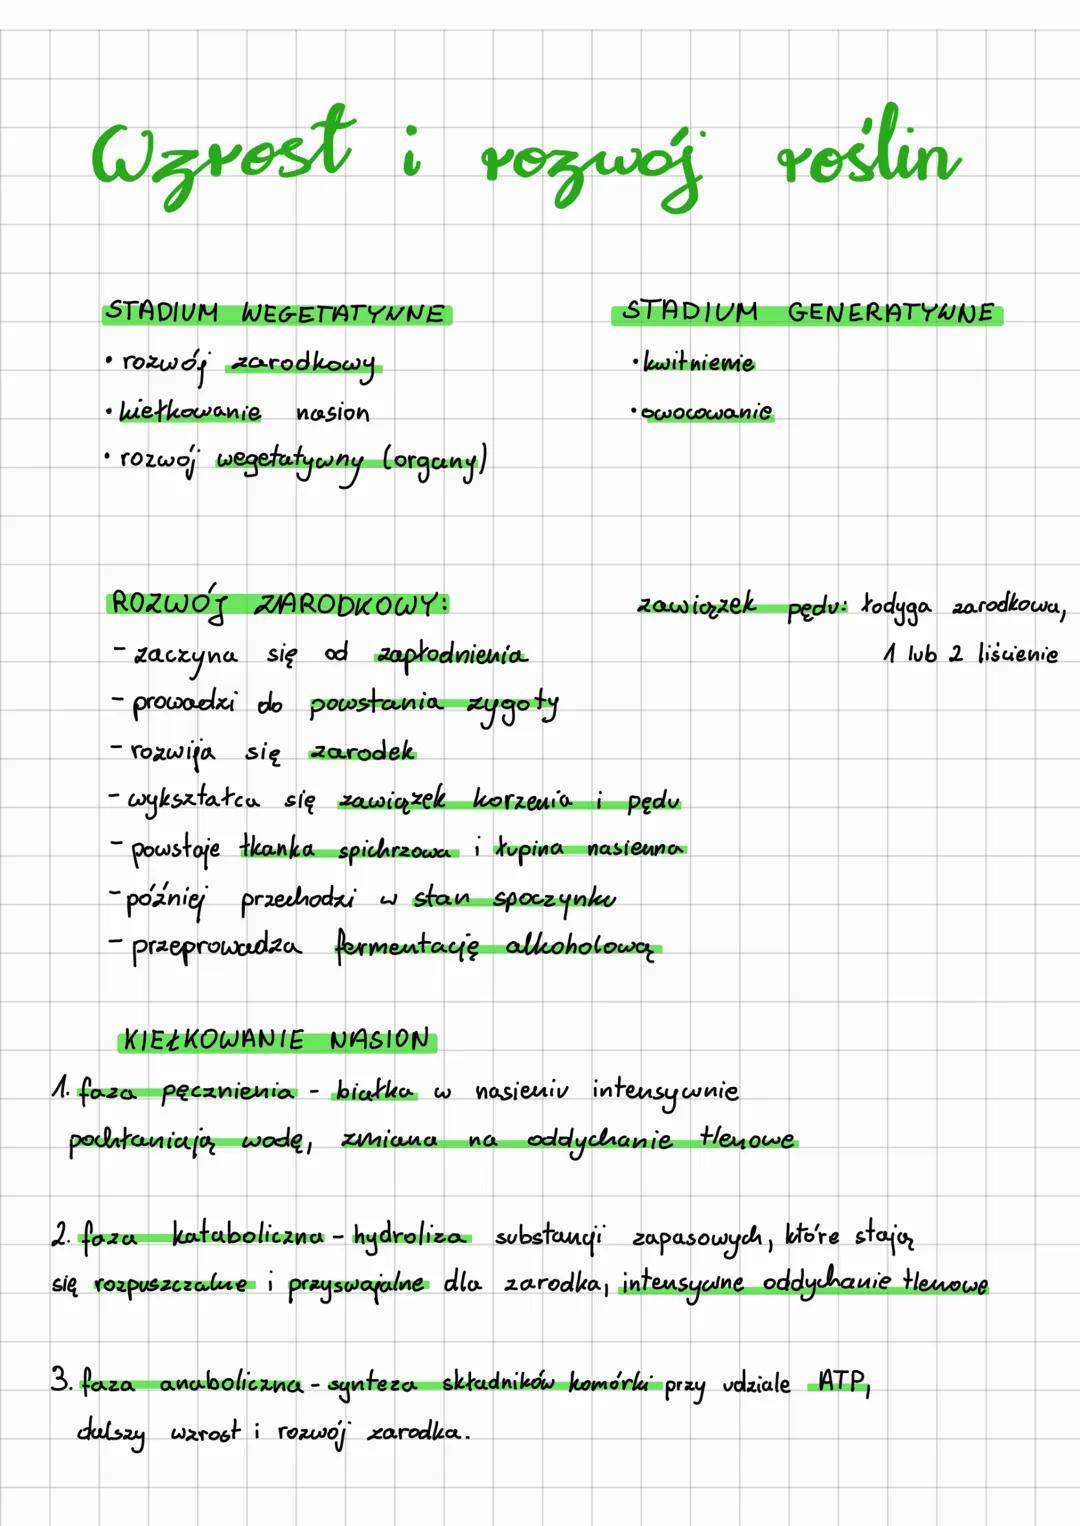 Wzrost i rozwój roślin
STADIUM WEGETATYWNE
• rozwój zarodkowy
• kiełkowanie nasion
• rozwój wegetatywny (organy)
STADIUM GENERATYWNE
• kwitnienie
• owocowanie
ROZWÓJ ZARODKOWY:
- zaczyna się od zapłodnienia
- prowadzi do powstania zygoty
- rozwija się zarodek
- wykształca się zawiązek korzenia i pędu
- powstaje tkanka spichrzowa i łupina nasienna
- później przechodzi w stan spoczynku
- przeprowadza fermentację alkoholową
zawiązek pędu: łodyga zarodkowa,
1 lub 2 liścienie
KIEŁKOWANIE NASION
1. faza pęcznienia - białka w nasieniu intensywnie
pochłaniają wodę, zmiana na oddychanie tlenowe
2. faza kataboliczna - hydroliza substancji zapasowych, które stają
się rozpuszczalne i przyswajalne dla zarodka, intensywne oddychanie tlenowe
3. faza anaboliczna - synteza składników komórki przy udziale ATP,
dalszy wzrost i rozwój zarodka.